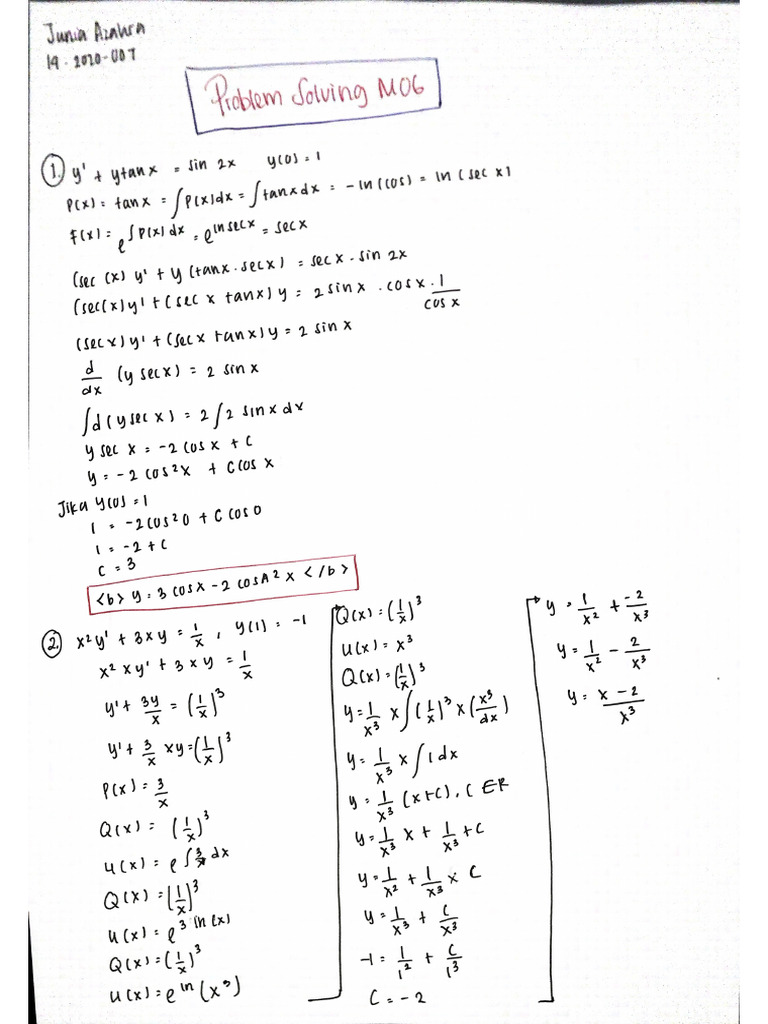 Junia Azahra
19-2020-007
Problem Solving M06
1. y' + ytanx = sin 2x y(0) = 1
P(x) = tanx = ∫P(x)dx = ∫tanxdx = -ln(cos) = ln(sec x)
F(x) = e^∫P(x)dx = e^lnsecx = secx
(sec (x) y' + y (tanx.secx) = secx. sin 2x
(sec(x)y' + (sec x tanx)y = 2sinx . cosx . 1/cos x
(secx)y' + (secx tanx)y = 2 sinx
d/dx (y secx) = 2 sinx
∫d(ysecx) = 2∫2 sinxdx
y sec x = -2cosx + C
y = -2 cos²x + Ccosx
Jika y(0) = 1
1 = -2cos²0 + C cos0
1 = -2+C
C = 3
<b> y = 3 cosx - 2 cosA² x </b>
2. x²y' + 3xy = 1/x , y(1) = -1
x² x y' + 3 x y = 1/x
y' + 3y/x = (1/x)³
y' + 3/x xy = (1/x)³
P(x) = 3/x
Q(x) = (1/x)³
u(x) = e^∫3/x dx
Q(x) = (1/x)³
u(x) = e^3 ln(x)
Q(x) = (1/x)³
u(x) = e^ln (x³)
Q(x) = (1/x)³
u(x) = x³
Q(x) = (1/x)³
y = 1/x³ x ∫(1/x)³ x (x³/dx)
y = 1/x³ x ∫1dx
y = 1/x³ (x+C), C ER
y = 1/x³ x + 1/x³ + C
y = 1/x² + 1/x³ x C
y = 1/x³ + C/x³
-1 = 1/1² + C/1³
C = -2
y = 1/x² + -2/x³
y = 1/x² - 2/x³
y = x-2/x³